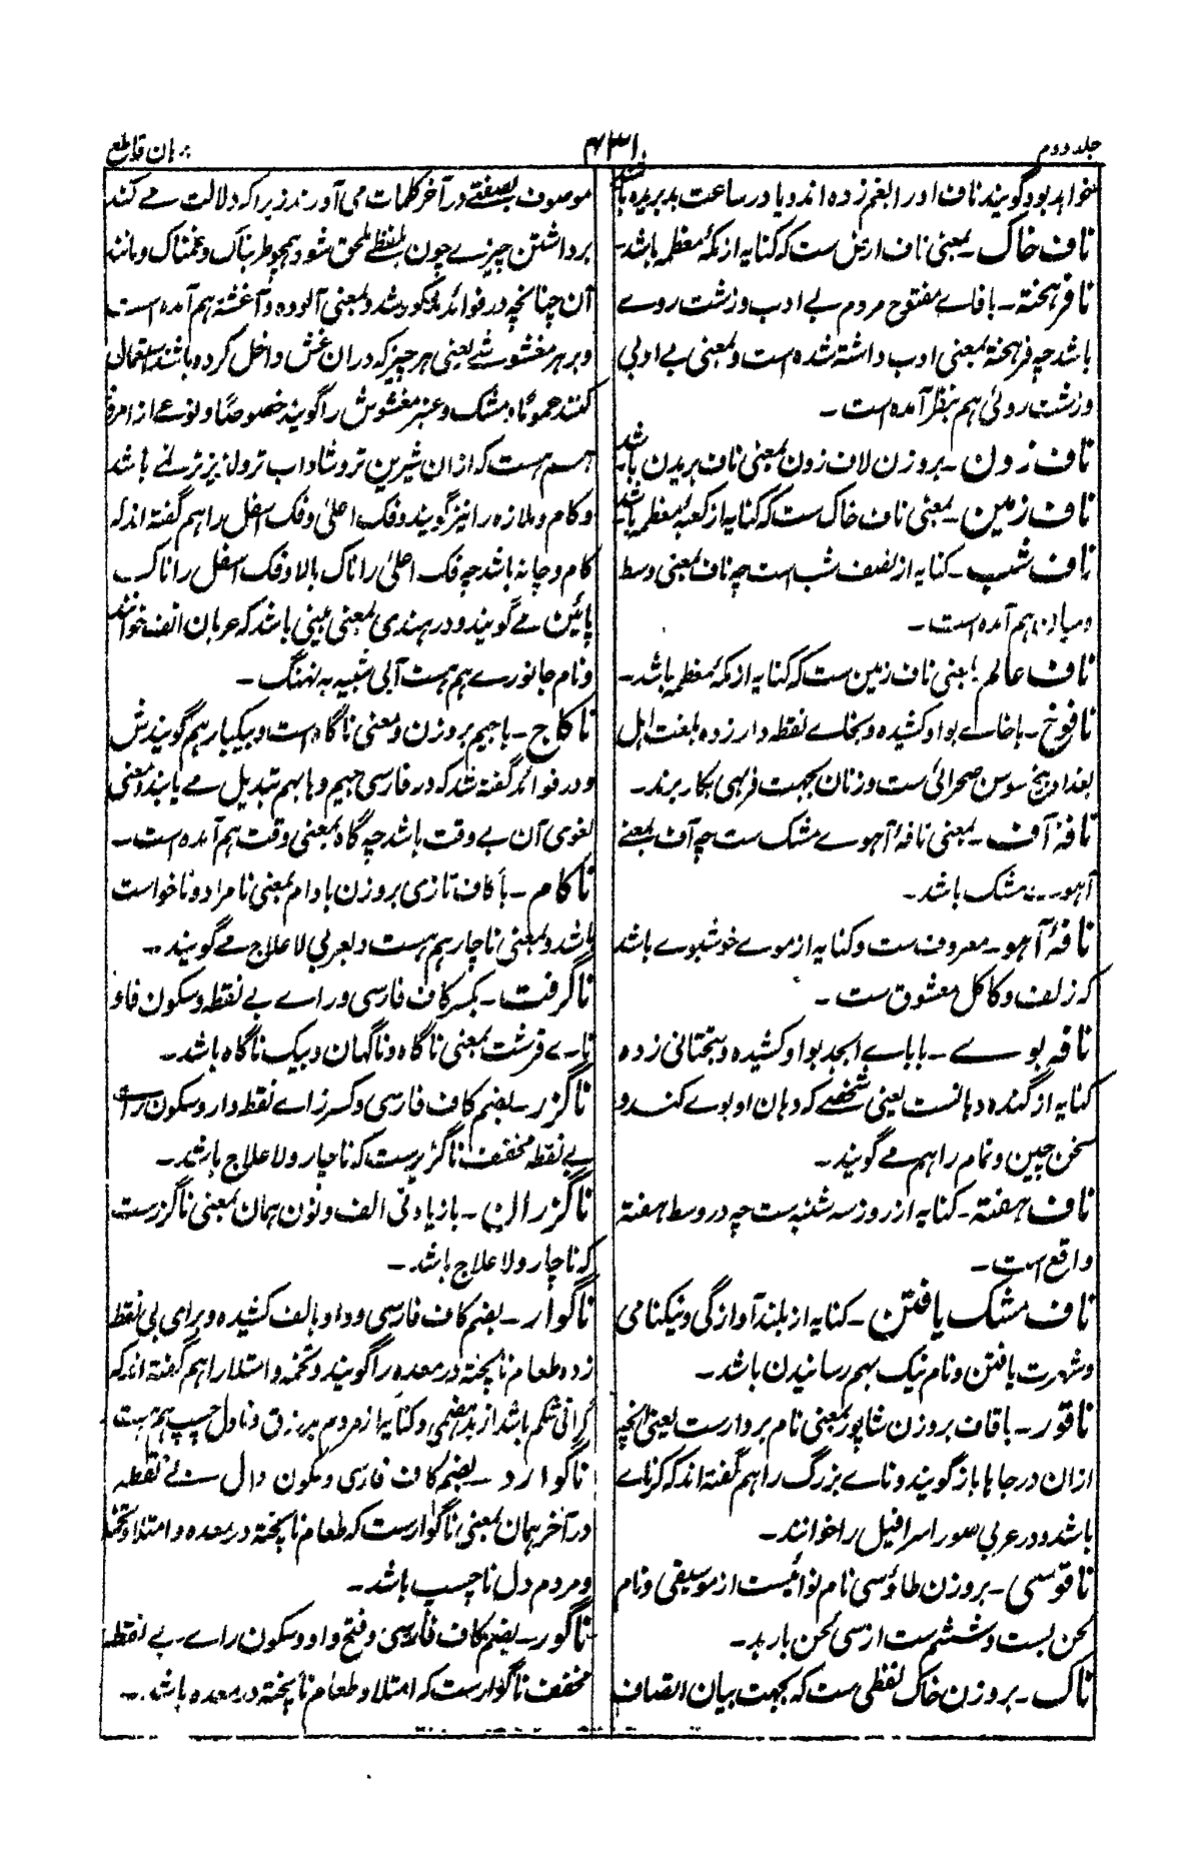 جلد دوم
۴۳۱
برہان قاطع
خواہد بود گویند ناف او را بغم زده اند و یا در ساعت بد بریده باشند
ناف خاک ـ بمعنی ناف ارض ست که کنایه از مکۂ معظمه باشد ـ
نافرہختہ ـ با فاے مفتوح مردم بے ادب و زشت روے
باشد چه فرہختہ بمعنی ادب داشته شده است و بمعنی بے ادبی
و زشت روئی ہم بنظر آمده است ـ
ناف زدن ـ بروزن لاف زدن بمعنی ناف بریدن باشد
ناف زمین ـ بمعنی ناف خاک ست که کنایه از کعبۂ معظمه باشد
ناف شب ـ کنایه از نصف شب است چه ناف بمعنی وسط
و میان ہم آمده است ـ
ناف عالم ـ بمعنی ناف زمین ست که کنایه از مکۂ معظمه باشد ـ
نافوخ ـ با خاے بواو کشیده و بخاے نقطه دار زده بلغت اہل
بغداد بیخ سوسن صحرائی ست و زنان بجہت فربہی بکار برند ـ
نافۂ آف ـ بمعنی نافۂ آہوے مشک ست چه آف بمعنے
آہوے مشک باشد ـ
نافۂ آہو ـ معروف ست و کنایه از موے خوشبوے باشد
که زلف و کاکل معشوق ست ـ
نافہ بوے ـ با باے ابجد بواو کشیده و بتحتانی زده
کنایه از گنده دہانست یعنی شخصے که دہان او بوے کند و
سخن چین و نمام را ہم مے گویند ـ
ناف ہفتہ ـ کنایه از روز سه شنبه ست چه در وسط ہفتہ
واقع است ـ
ناف مشک یافتن ـ کنایه از بلند آوازگی و نیکنامی
و شہرت یافتن و نام نیک بہم رسانیدن باشد ـ
ناقور ـ با قاف بروزن شاپور بمعنی نام بردارست یعنی آنچه
ازان در جاہا باز گویند و ناے بزرگ را ہم گفته اند که کرناے
باشد و در عربی صور اسرافیل را خوانند ـ
ناقوسی ـ بروزن طاؤسی نام نوائیست از موسیقی و نام
لحن بست و ششم ست از سی لحن باربد ـ
ناک ـ بروزن خاک لفظی ست که بجہت بیان اتصاف
موصوف بصفتے در آخر کلمات می آورند زیرا که دلالت مے کند
برداشتن چیزے چون بلفظے ملحق شود ہمچو طربناک و غمناک و مانند
آن چنانچه در فوائد مذکور شد و بمعنی آلوده و آغشته ہم آمده است
و بر ہر مغشوشے یعنی ہر چیز که دران غش داخل کرده باشند استعمال
کنند عموماً و مشک و عنبر مغشوش را گویند خصوصاً و نوعے از امرود
ہم ہست که ازان شیرین تر و شاداب تر و لذیذتر نمے باشد
و کام و ملازه را نیز گویند و فک اعلیٰ و فک اسفل را ہم گفته اند که
کام و چانه باشد چه فک اعلیٰ را ناک بالا و فک اسفل را ناک
پائین مے گویند و در ہندی بمعنی بینی باشد که عربان انف خوانند
و نام جانورے ہم ہست آبی شبیه به نہنگ ـ
ناکاج ـ با جیم بروزن و معنی ناگاه است و بیکبار ہم گویندش
و در فوائد گفته شد که در فارسی جیم و ہا بہم تبدیل مے یابند و معنی
لغوی آن بے وقت باشد چه گاه بمعنی وقت ہم آمده است ـ
ناکام ـ با کاف تازی بروزن بادام بمعنی نامراد و ناخواست
باشد و بمعنی ناچار ہم ہست و بعربی لاعلاج مے گویند ـ
ناگرفت ـ بکسر کاف فارسی و راے بے نقطه و سکون فا و
تاے قرشت بمعنی ناگاه و ناگہان و بیک ناگاه باشد ـ
ناگزر ـ بضم کاف فارسی و کسر زاے نقطه دار و سکون راے
بے نقطه مخفف ناگزیر ست که ناچار و لاعلاج باشد ـ
ناگزران ـ بازیادتی الف و نون ہمان بمعنی ناگزرست
که ناچار و لاعلاج باشد ـ
ناگوار ـ بضم کاف فارسی و واو بالف کشیده و برای بی نقطه
زده طعام ناپخته در معده را گویند و تخمه و امتلا را ہم گفته اند که
گرانی شکم باشد از بدہضمی و کنایه از مردم بے رزق و نادل چسپ ہم ہست
ناگوارد ـ بضم کاف فارسی و سکون دال بے نقطه
در آخر ہمان بمعنی ناگوارست که طعام ناپخته در معده و امتلا و تخمه
و مردم دل ناچسپ باشد ـ
ناگور ـ بضم کاف فارسی و فتح واو و سکون راے بے نقطه
مخفف ناگوارست که امتلا و طعام ناپخته در معده باشد ـ